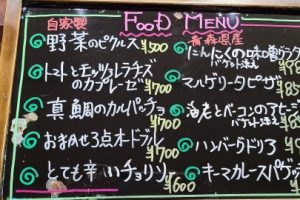 FOOD MENU
自家製
野菜のピクルス ¥500
トマトとモッツァレラチーズ
のカプレーゼ ¥1700
真鯛のカルパッチョ
¥1700
おまかせ3点オードブル
¥1700
とても辛いチョリソー
¥600
青森県産
にんにくの味噌
バゲット添え
マルゲリータピザ
海老とベーコンのアヒ
バゲット添え
ハンバーグドリア
キーマカレースパゲッ